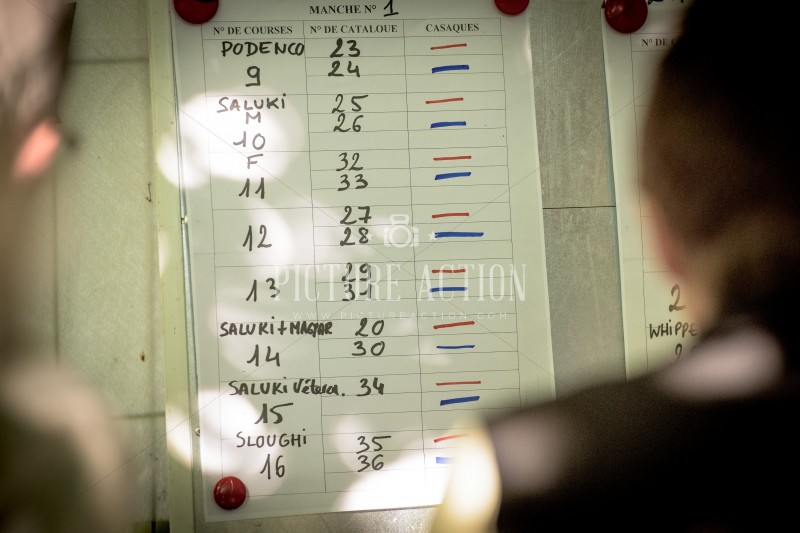 MANCHE N° 1
N° DE COURSES N° DE CATALOUE CASAQUES
PODENCO 23
9 24
SALUKI 25
M 26
10
F 32
11 33
27
12 28
29
13 31
SALUKI + MAGYAR 20
14 30
SALUKI Vétéra. 34
15
SLOUGHI 35
16 36
N° DE
2
WHIPPE
PICTURE ACTION
WWW.PICTUREACTION.COM